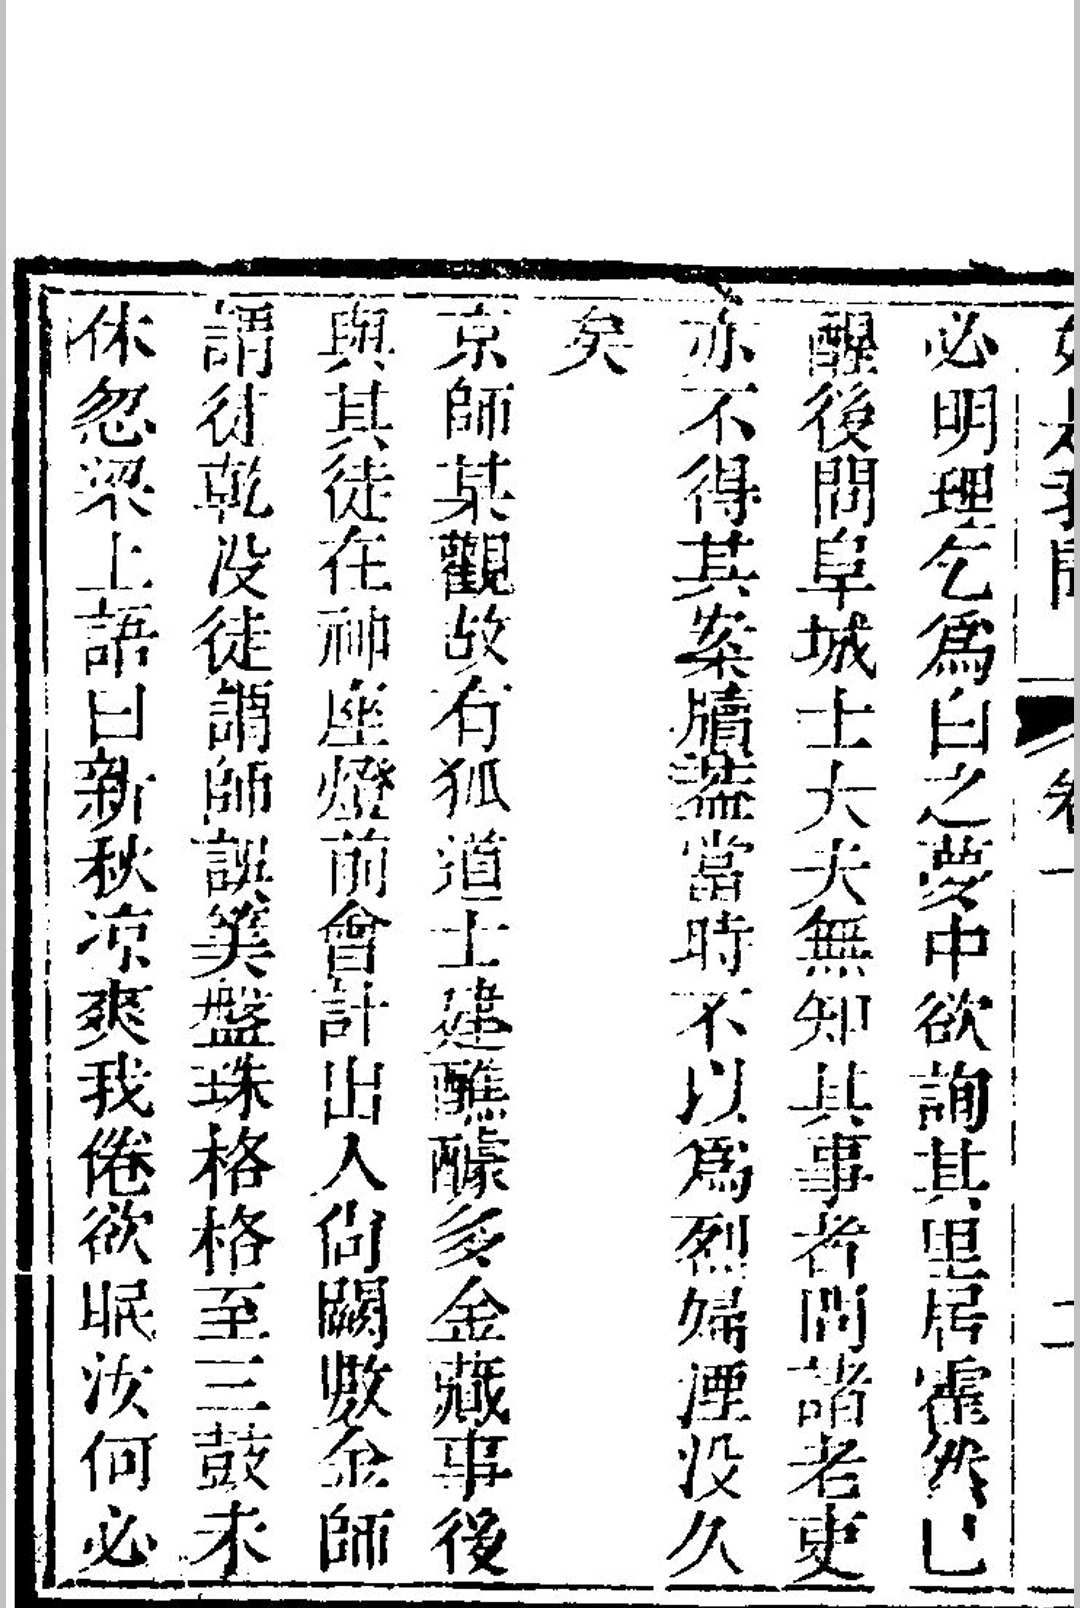 必明理乞爲白之夢中欲詢其里居霍然已
醒後問阜城士大夫無知其事者問諸老吏
亦不得其案牘蓋當時不以爲烈婦湮没久
矣
京師某觀故有狐道士建醮醵多金蕆事後
與其徒在神座燈前會計出入尙闕數金師
謂徒乾没徒謂師誤筭盤珠格格至三鼓未
休忽梁上語曰新秋凉爽我倦欲眠汝何必